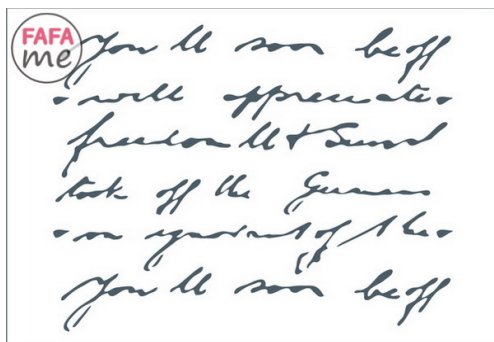 FAFA
me
you'll soon be off
will appreciate
freedom
took off the Germans
of the
you'll soon be off